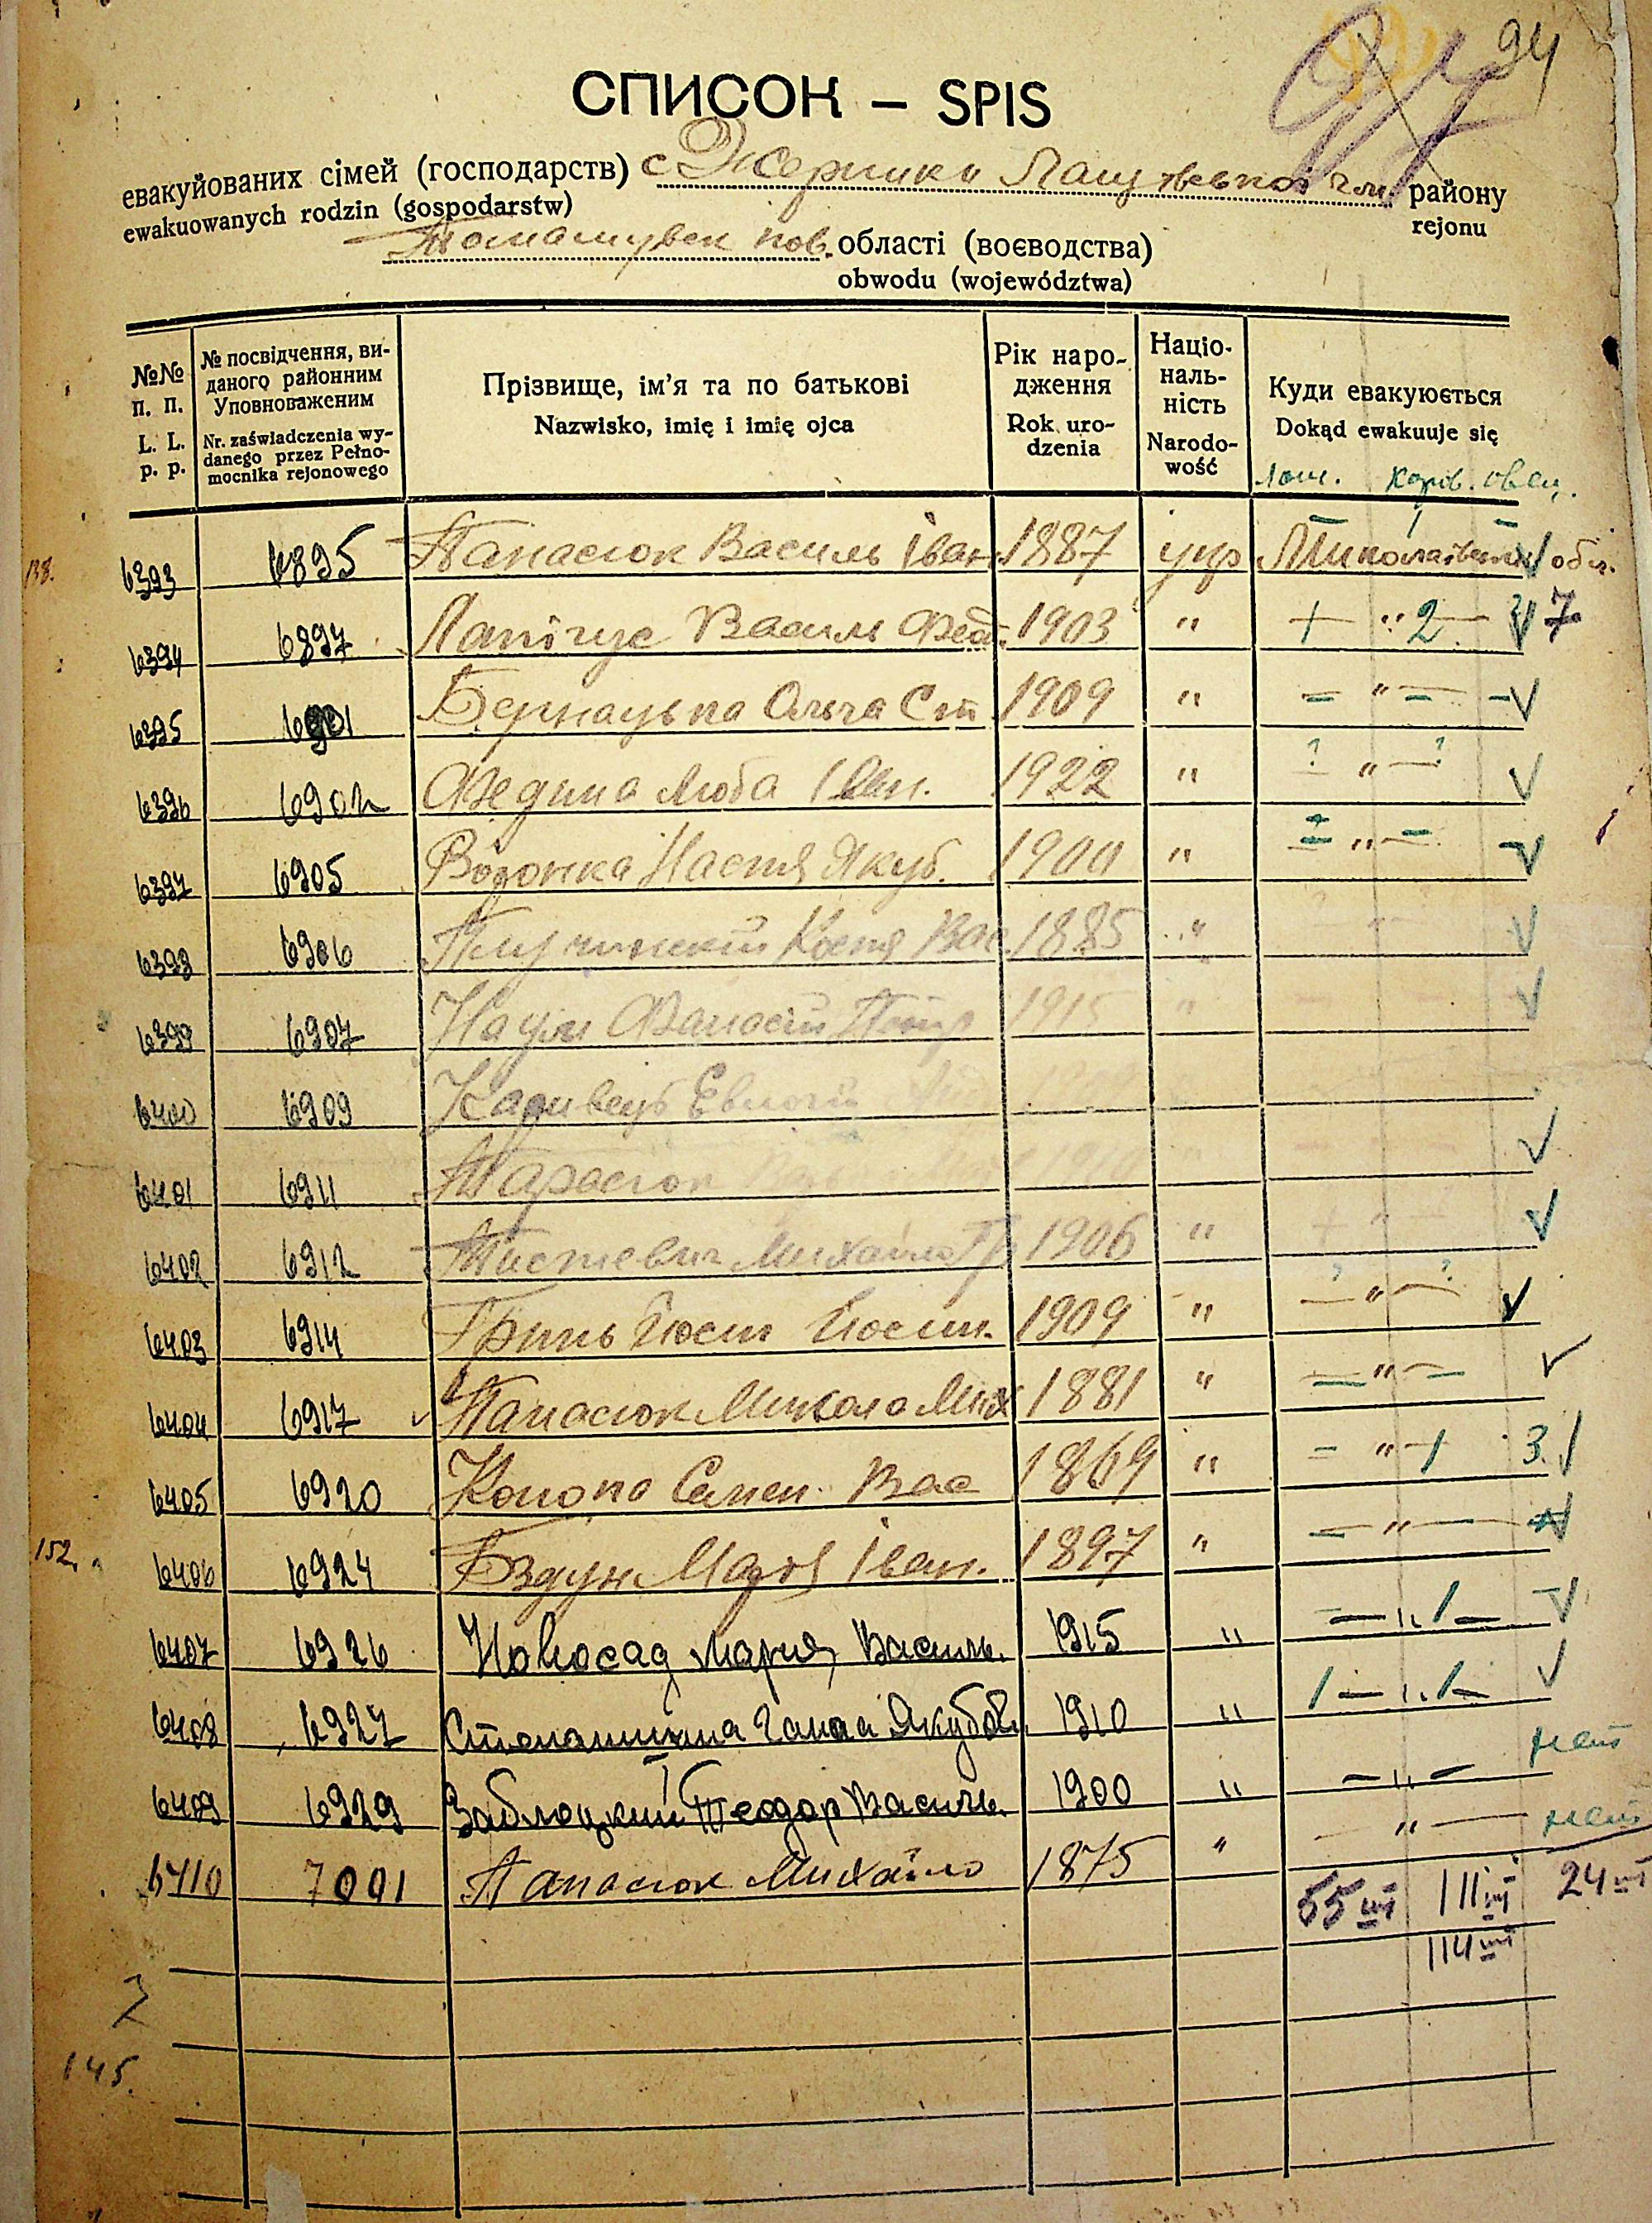 94
СПИСОК – SPIS
евакуйованих сімей (господарств) с Жерники Лащівської гм. району
ewakuowanych rodzin (gospodarstw) rejonu
Томашувск пов. області (воєводства)
obwodu (województwa)
№№ п. п. L. L. p. p.
№ посвідчення, виданого районним Уповноваженим
Nr. zaświadczenia wydanego przez Pełnomocnika rejonowego
Прізвище, ім'я та по батькові
Nazwisko, imię i imię ojca
Рік народження
Rok urodzenia
Національність
Narodowość
Куди евакуюється
Dokąd ewakuuje się
Лош. Корів. овец.
138. 6393 6895 Панасюк Василь Іван 1887 укр Миколаївськ обл.
6394 6897 Василь Фед. 1903 " 1 — " 2 — 7
6395 6901 Ольга Ст 1909 " — " —
6396 6902 Люба Іван. 1922 " — " —
6397 6905 Настя Якуб. 1900 " — " —
6398 6906 Костя Вас. 1885 " "
6399 6907 1915 "
6400 6909
6401 6911 Тарасюк
6402 6912 Михайло Гр 1906 " "
6403 6914 Гринь Йосип Йосип. 1909 " — " —
6404 6917 Панасюк Микола Мих 1881 " — " —
6405 6920 Конопа Семен Вас 1869 " — " — 1 3.
152. 6406 6924 Бздун Іван. 1897 " — " —
6407 6926 Новосад Мария Василь. 1915 " — " 1 —
6408 6927 Ганна Якубов. 1910 " 1 — " 1 —
6409 6929 Заблоцкий Теодор Василь. 1900 " — " — нет
6410 7001 Панасюк Михайло 1875 " — " — нет
55 шт 111 шт 24 шт
114 шт
7
145.